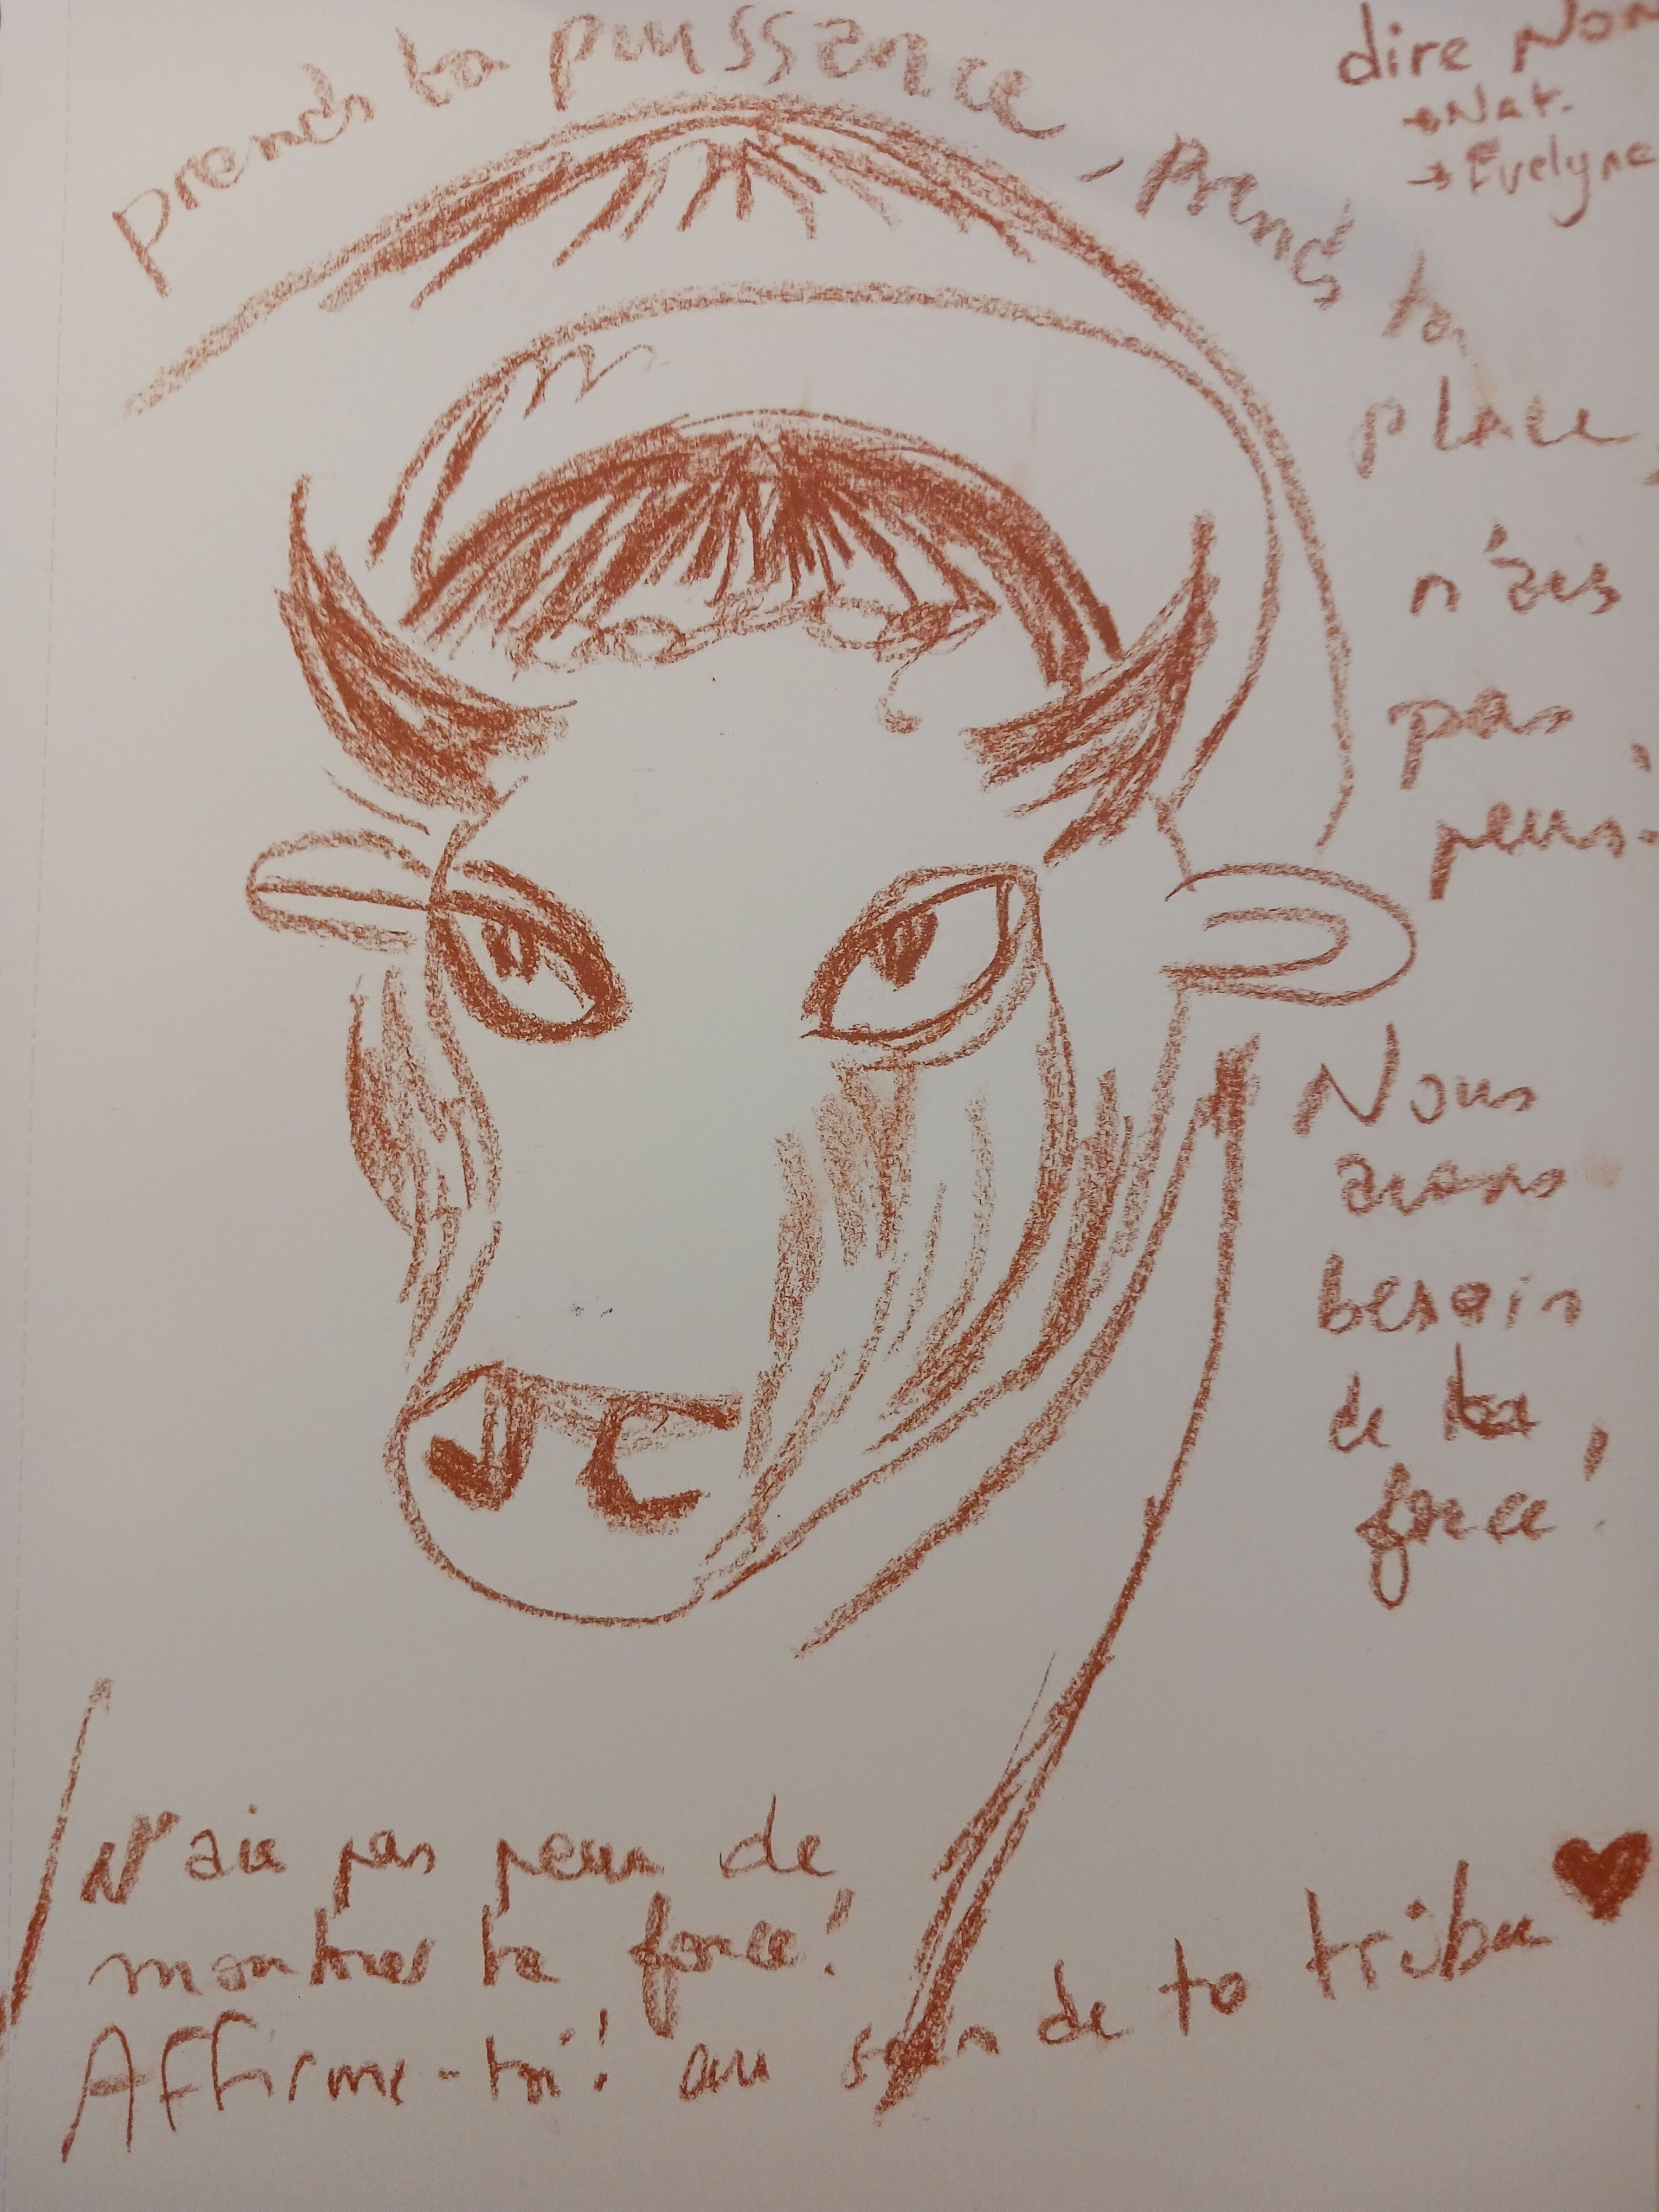 Prends ta puissance, Prends ta
place,
n'aies
pas
peur.
dire Non
→ Nat.
→ Evelyne
Nous
avons
besoin
de ta
force!
N'aie pas peur de
montrer ta force!
Affirme-toi! au sein de ta tribu ♥